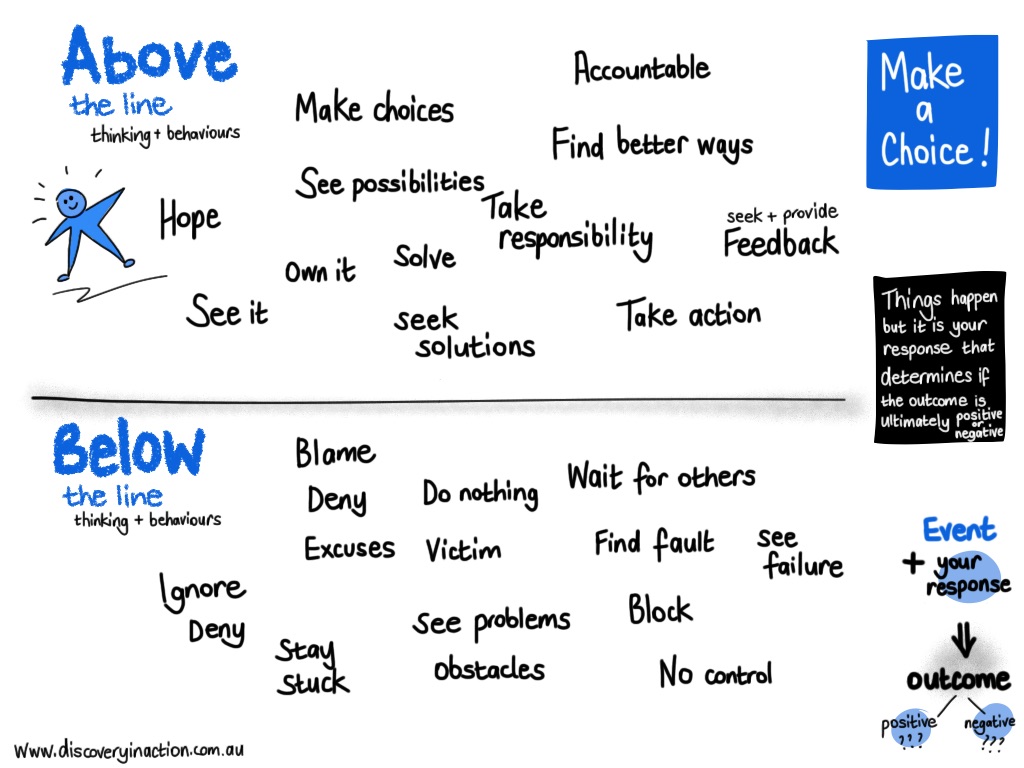 Above
the line
thinking + behaviours
Accountable
Make choices
Find better ways
See possibilities
Take
responsibility
Hope
seek + provide
Feedback
Own it
Solve
See it
seek
solutions
Take action
Make
a
Choice!
Things happen
but it is your
response that
determines if
the outcome is
ultimately positive
or
negative
Below
the line
thinking + behaviours
Blame
Deny
Do nothing
Wait for others
Excuses
Victim
Find fault
see
failure
Ignore
Deny
See problems
Block
Stay
Stuck
Obstacles
No control
Event
+ your
response
⇓
outcome
positive
???
negative
???
www.discoveryinaction.com.au